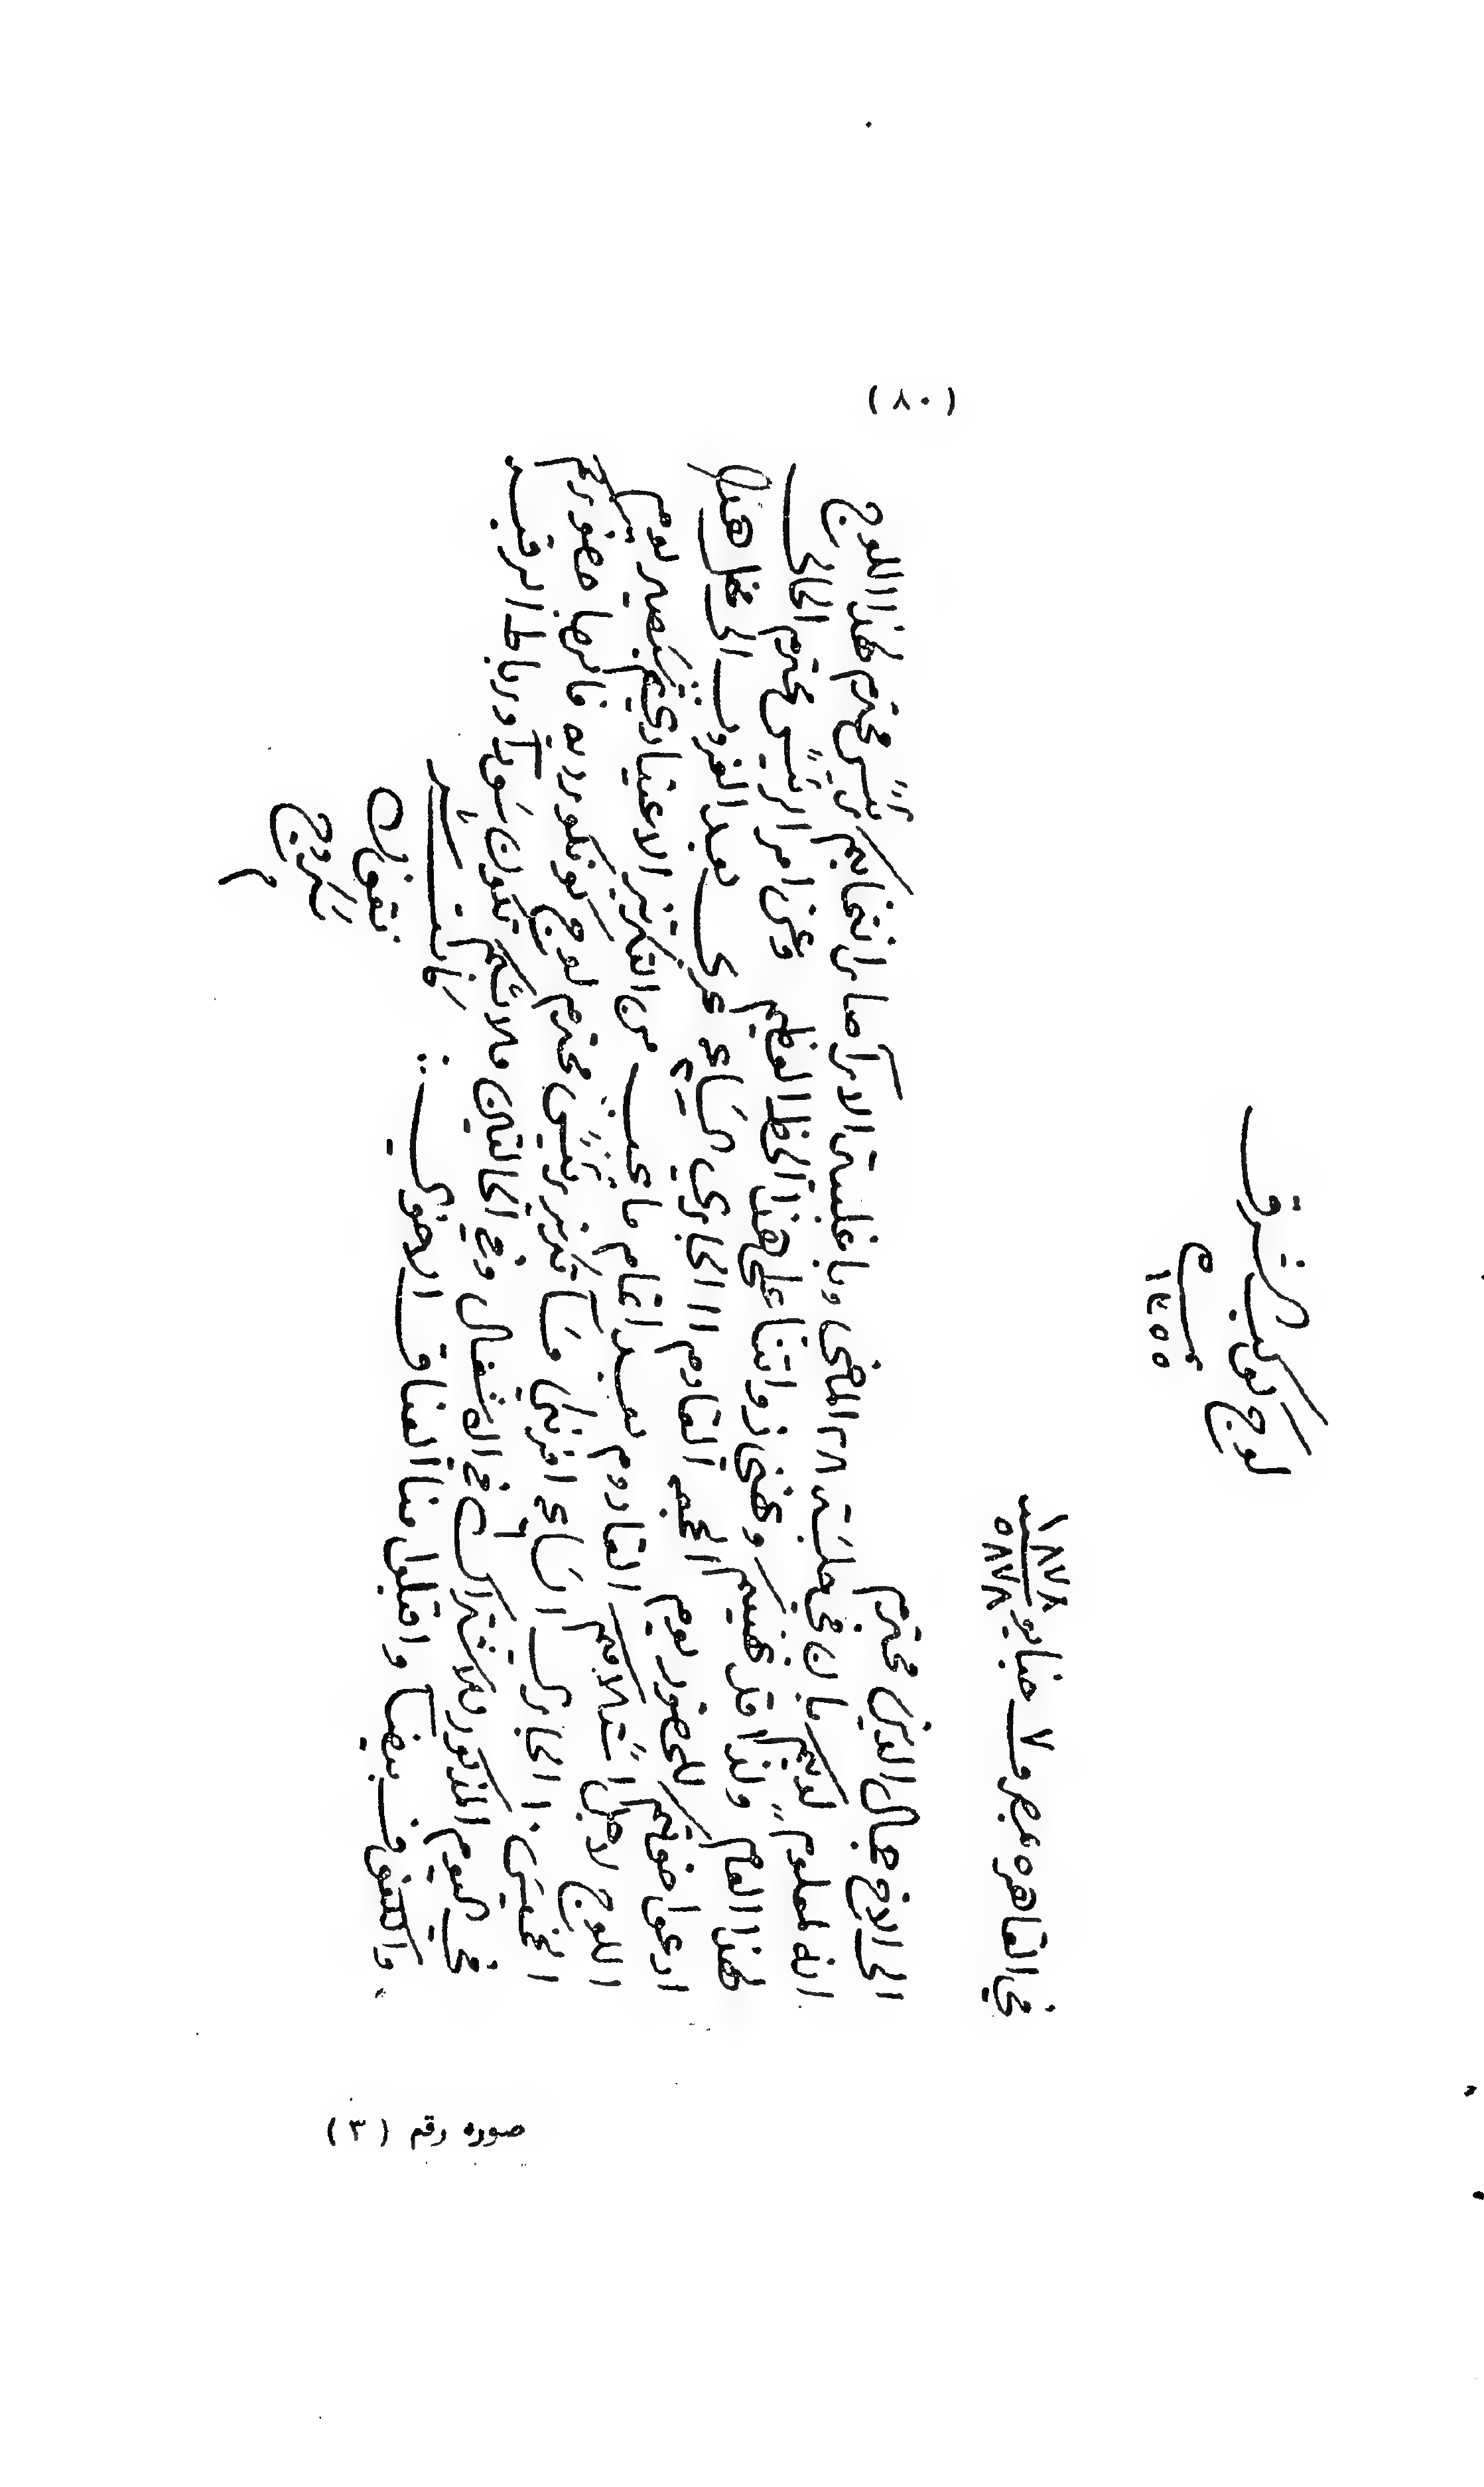 (٨٠)
لوج كوكب الشرق
نمرة
١٣٥٥
في القاهره بمصر ٧ جنايو ١٨٧٨
٥٨٧٨
الى الاخ جمال الدين محترم
انه لمعلوم لديكم بان في جلسة ٢٨ الماضى وباغلبية الاراء صار انتخابكم رئيس محترم لهذا اللوج
لهذا العام ولذا قد نهنيكم ونهنى ذواتنا على هذا الحظ العظيم وعن امر الرئيس محترم الحالى
ادعوا اخوتكم للحضور يوم الجمعه القادم ١١ الجارى الساعه ٢ عربى بعد الغروب الى محفل هذا
اللوج لاجل استلامكم القادوم بعد اتمام ما يجب من التكريز الاعتيادى ثم سيصير يوم
الخميس ١٠ الجارى الساعه ٦ افرنكى مساء تكريز رئيس محترم لوج كونكورديه فالرجا حضوركم
في اليوم المذكور للاشتراك في الاشغال وفي الحالتين ملابسكم تكون سوداء ورباط الرقبه
والكفوف بيضاء واقبلوا منا العناق الاخوى
كاتب سر
نقولا
سكروج
صورة رقم (٣)